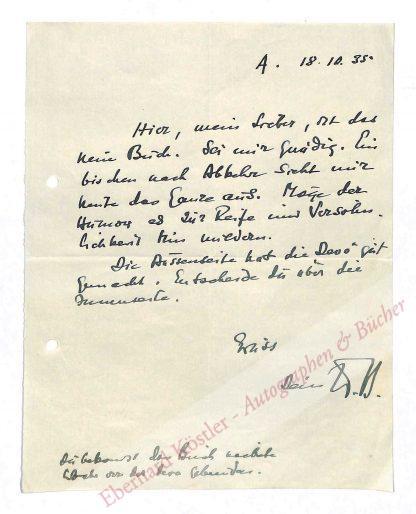 A. 18.10.35.
Hier, mein Lieber, ist das
neue Buch. Sei mir gnädig. Ein
bischen nach Abkehr sieht mir
heute das Ganze aus. Möge der
Humor es zur Reife und Versöhn-
lichkeit hin mildern.
Die Aussenseite hat die "Deva" gut
gemacht. Entscheide du über die
Innenseite.
Gruss
Dein
Du bekommst das Buch nächste
Woche von der Deva gebunden.
Eberhard Köstler - Autographen & Bücher